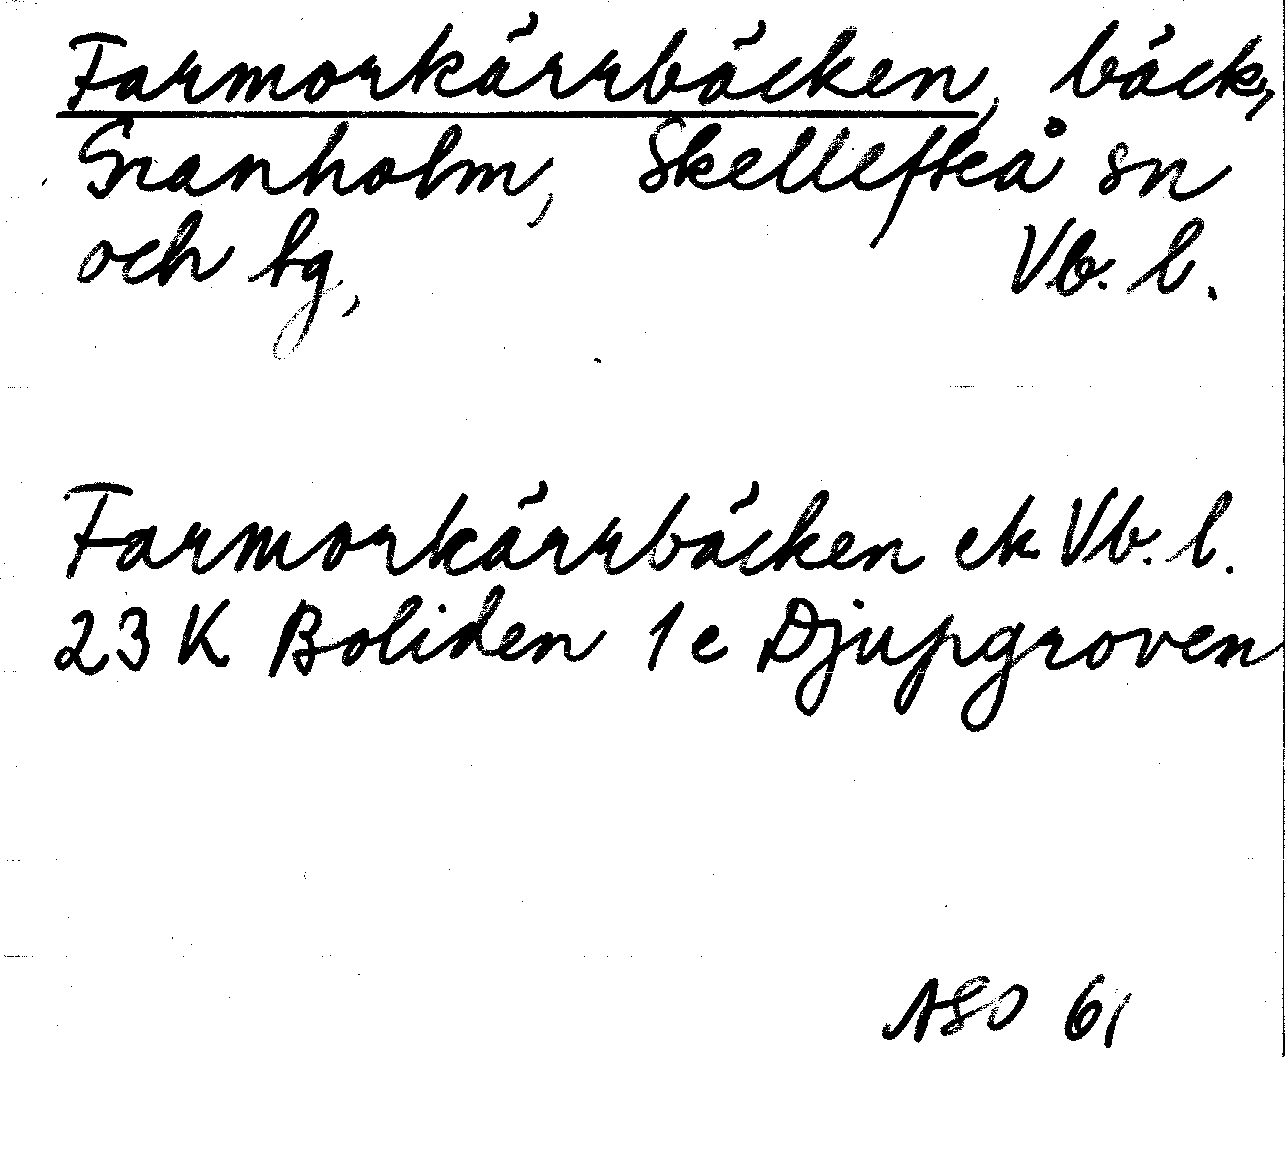 Farmorkärrbäcken, bäck,
Granholm, Skellefteå sn
och tg, Vb. l.
Farmorkärrbäcken ek Vb. l.
23 K Boliden 1 e Djupgroven
ASO 61